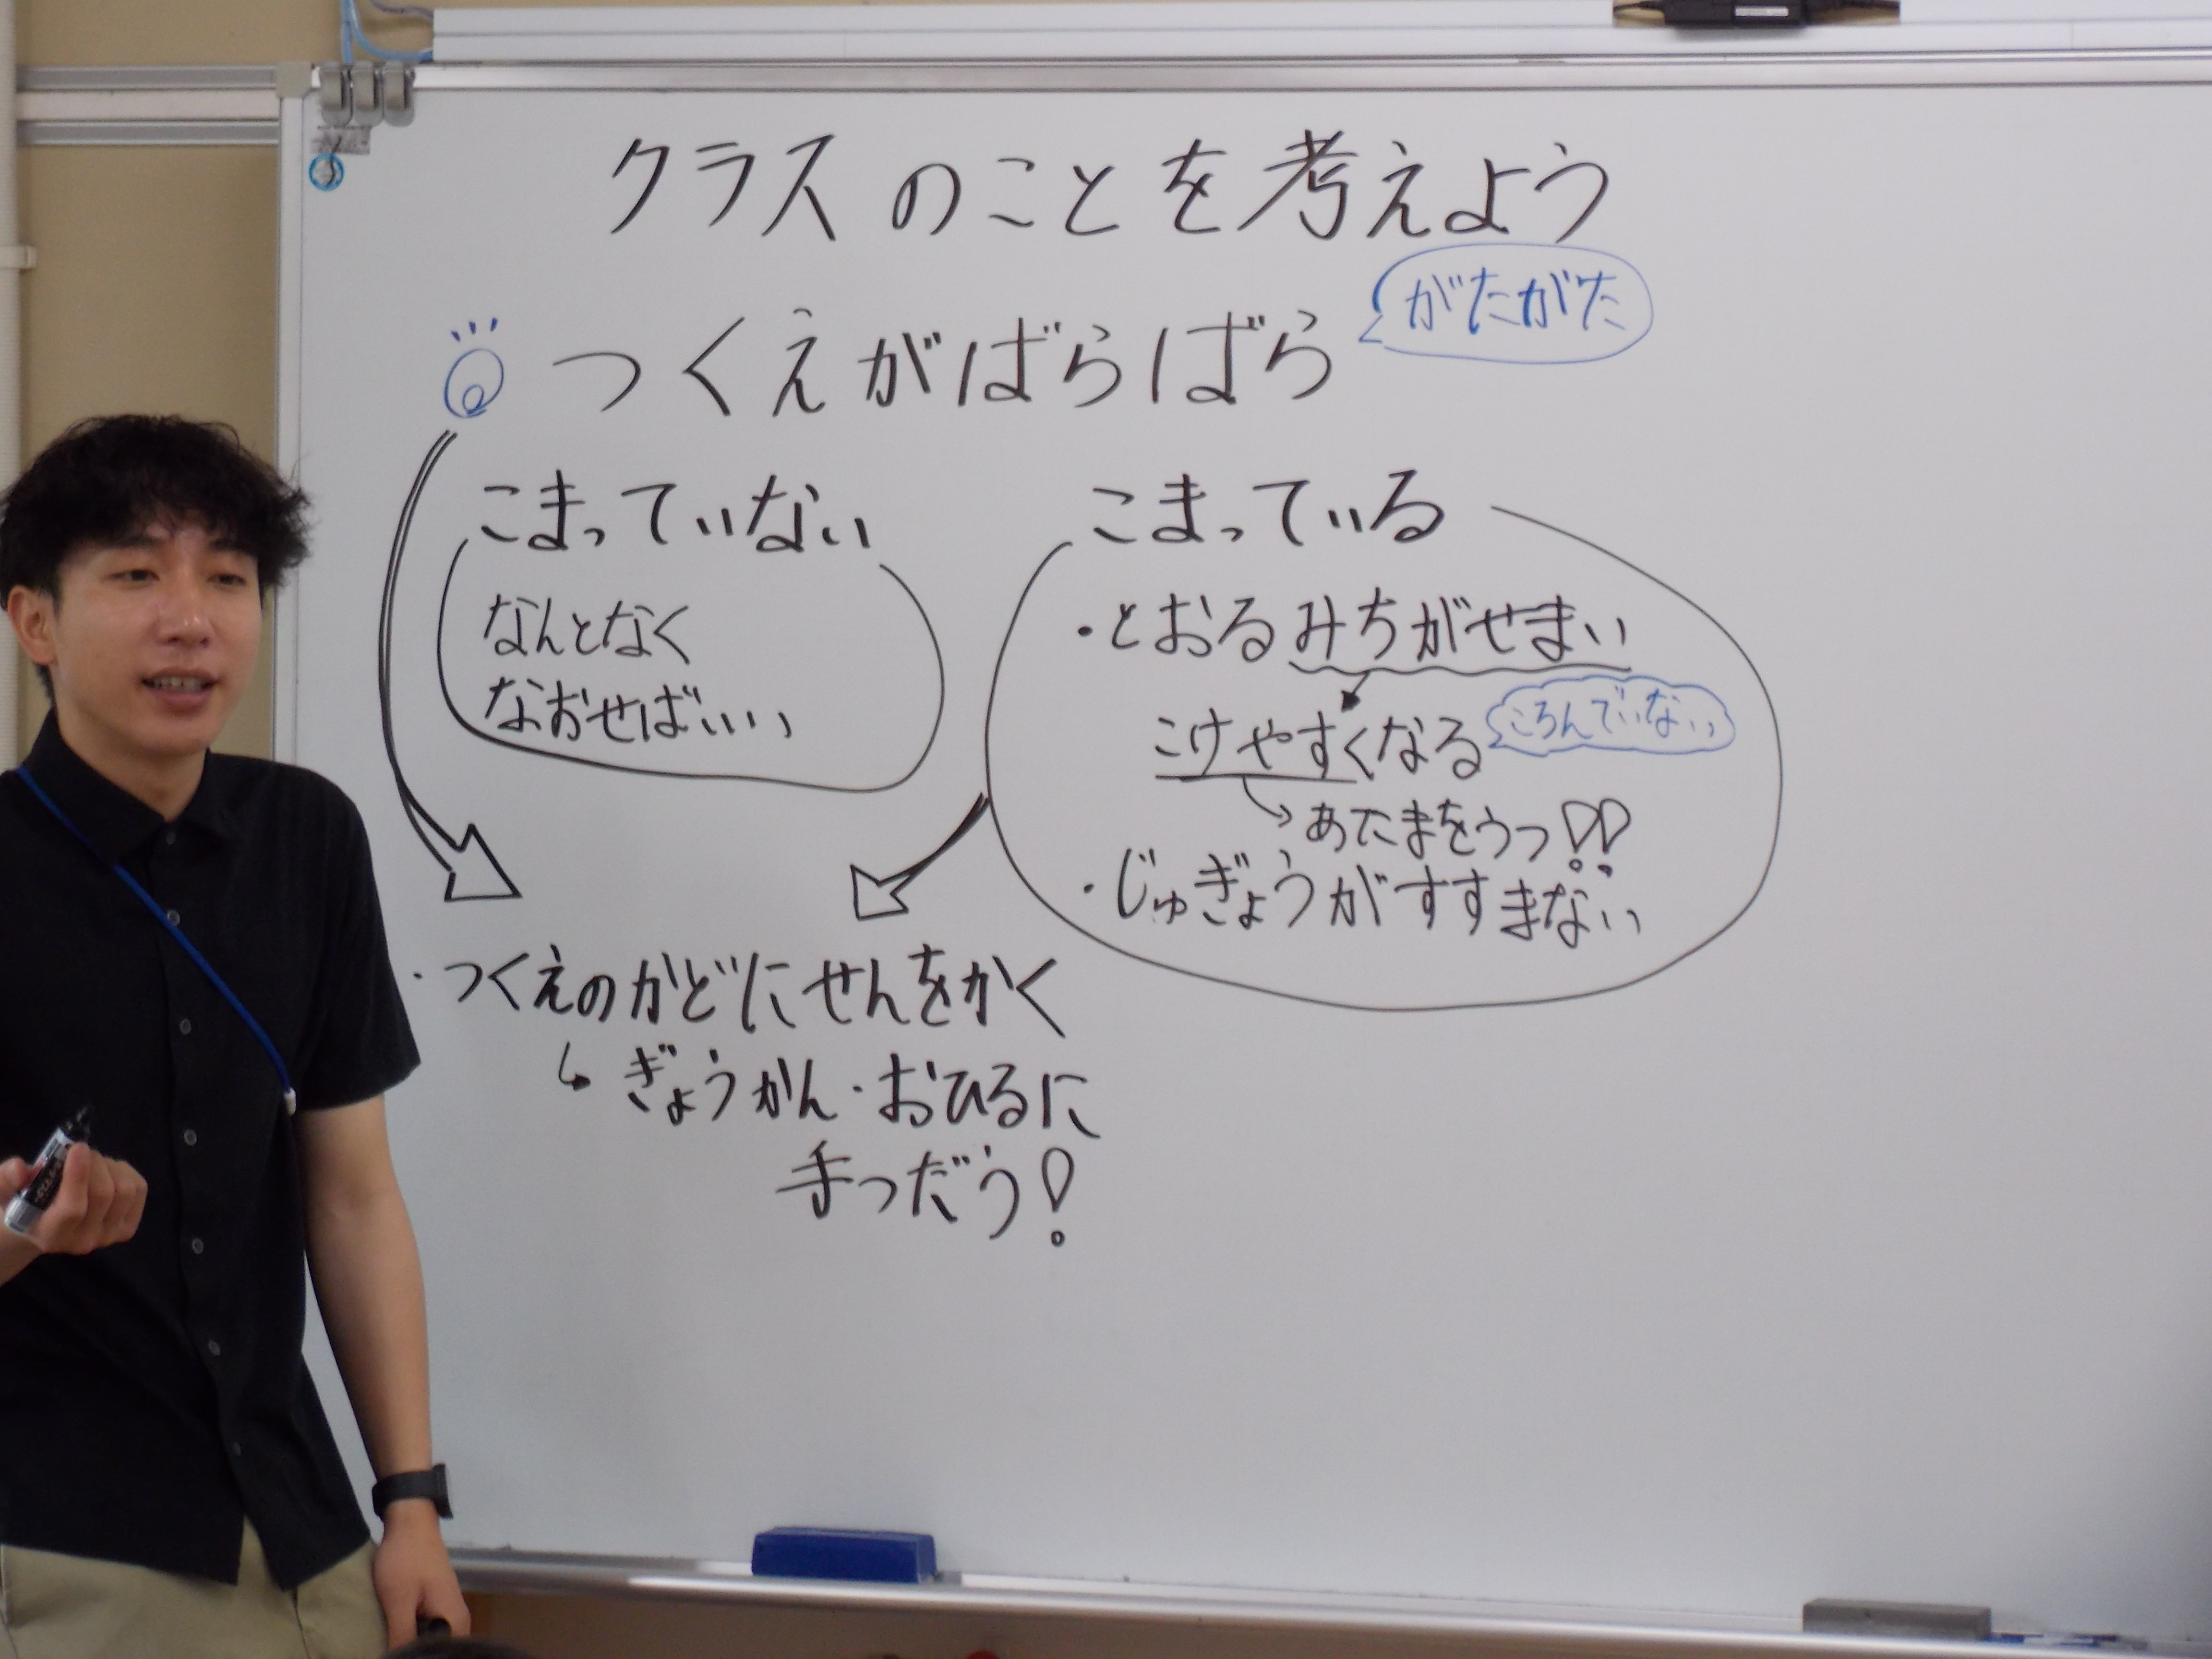 クラスのことを考えよう
つくえがばらばら
がたがた
こまっていない
なんとなく
なおせばいい
こまっている
・とおるみちがせまい
こけやすくなる
ころんでいない
あたまをうつ!!
・じゅぎょうがすすまない
・つくえのかどにせんをかく
↳ ぎょうかん・おひるに
手つだう!